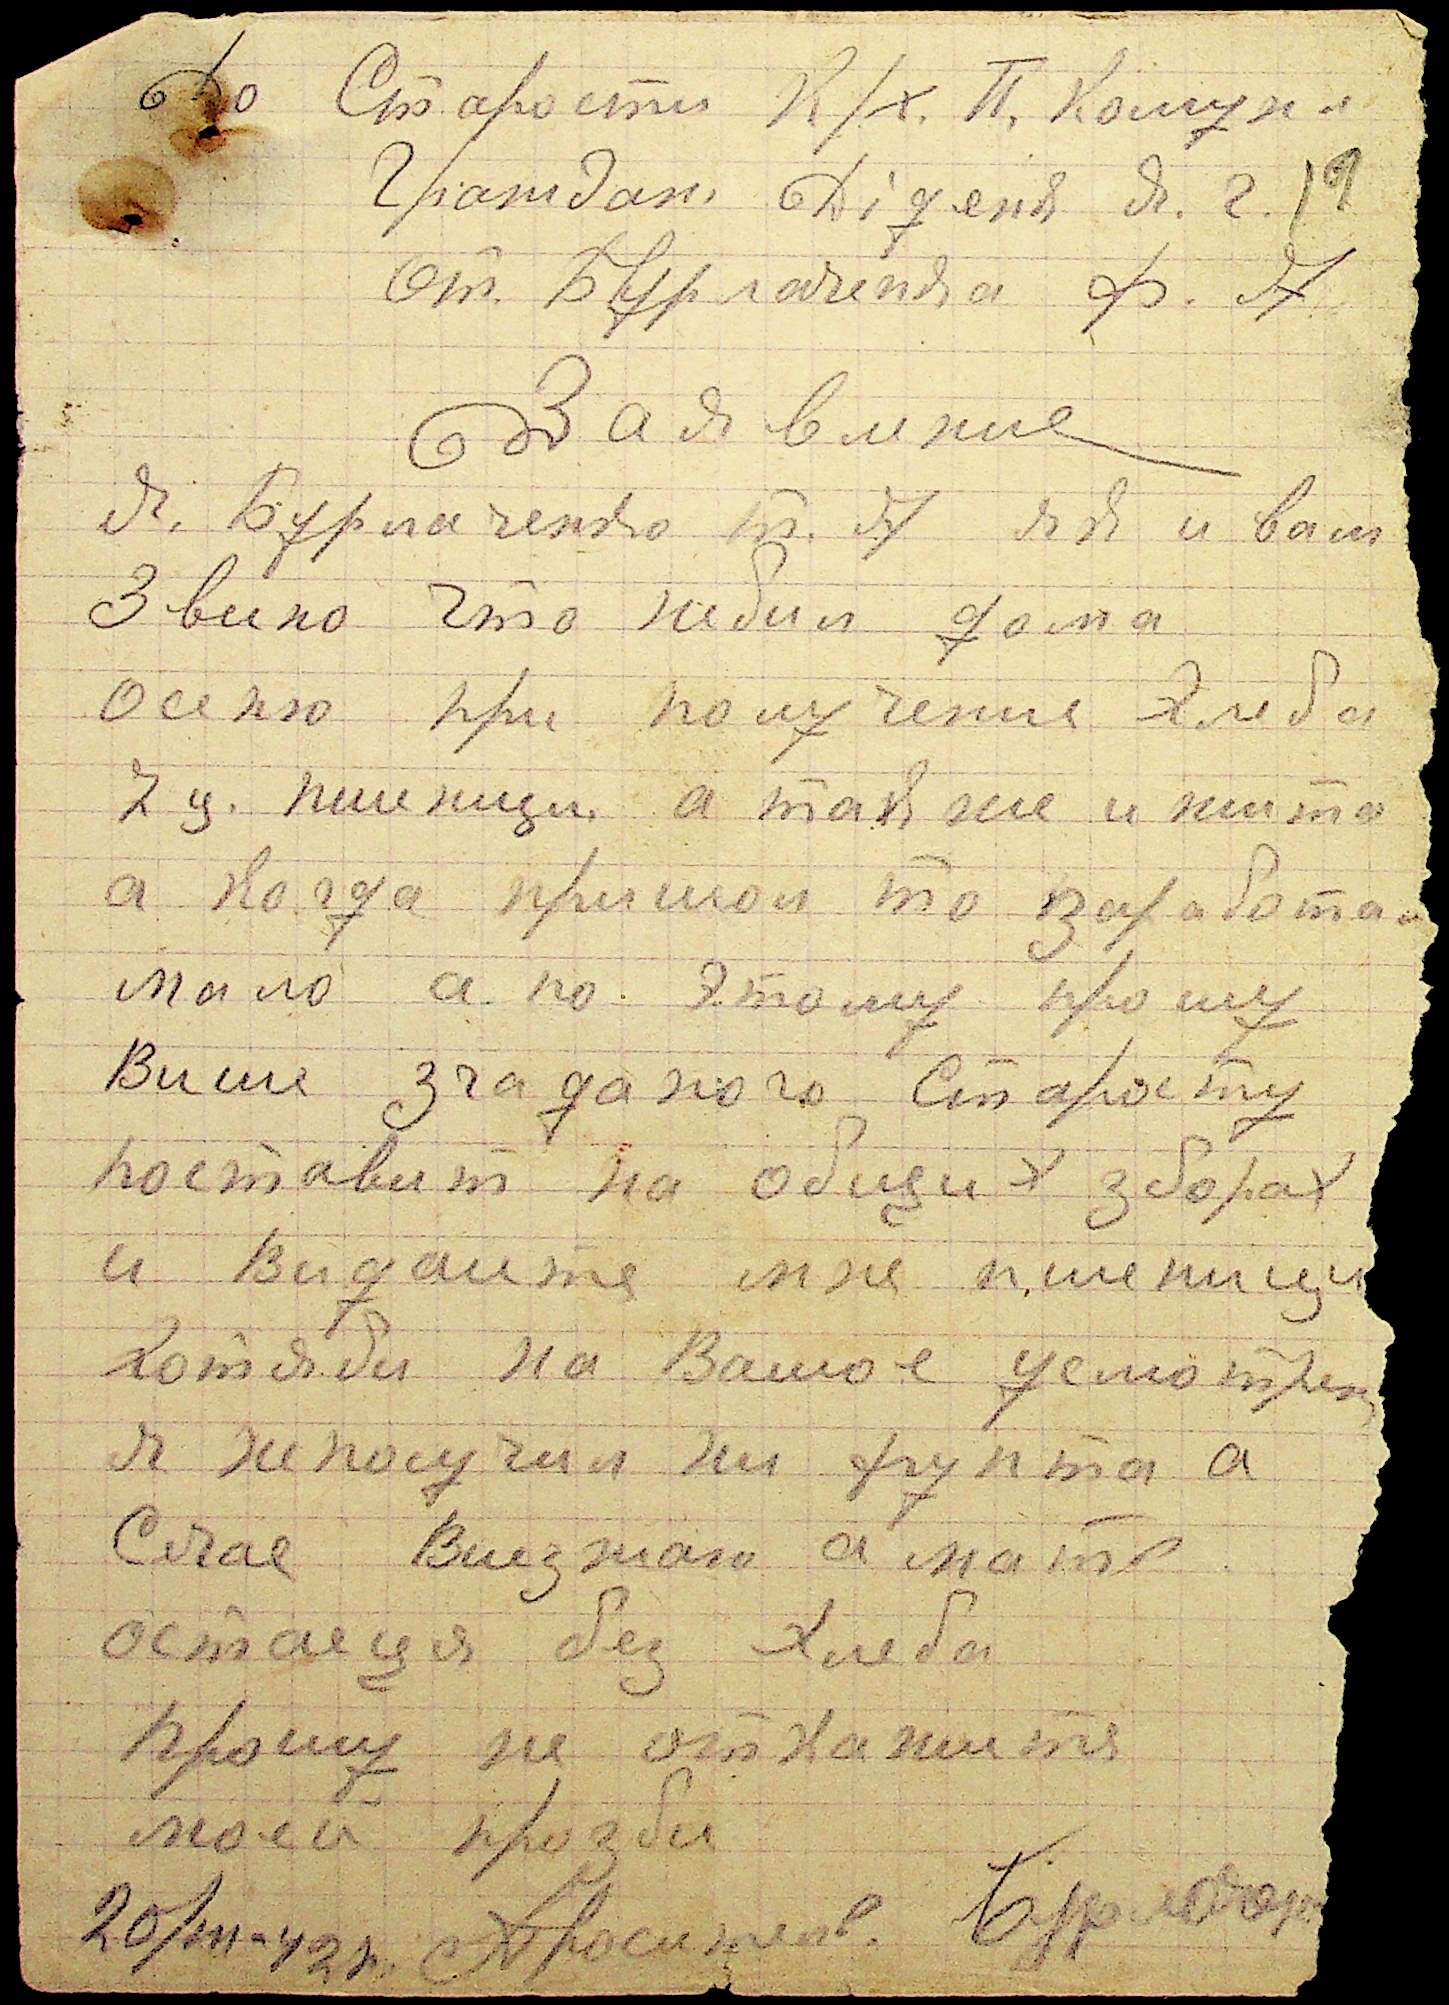 До Старости К/х. П. Комуни
Граждан. Діденк Я. г. 19
От. Бурлаченка Ф. А
Заявление
Я. Бурлаченко Т. А як и вам
Звино что небил дома
осеню при получение Хлеба
2 ц. пшеници. а также и жито
а когда пришол то заработал
мало а по. Этому прошу
Више згаданого Старосту
поставит на общих зборах
и Видаите мне пшеници
хотяби на Вашое усмотрен
я неполучил ни фунта а
Счае Виезжаю а мате
остаеця без Хлеба
прошу не откажите
моей прозби
20/III-42 г. Проситель.